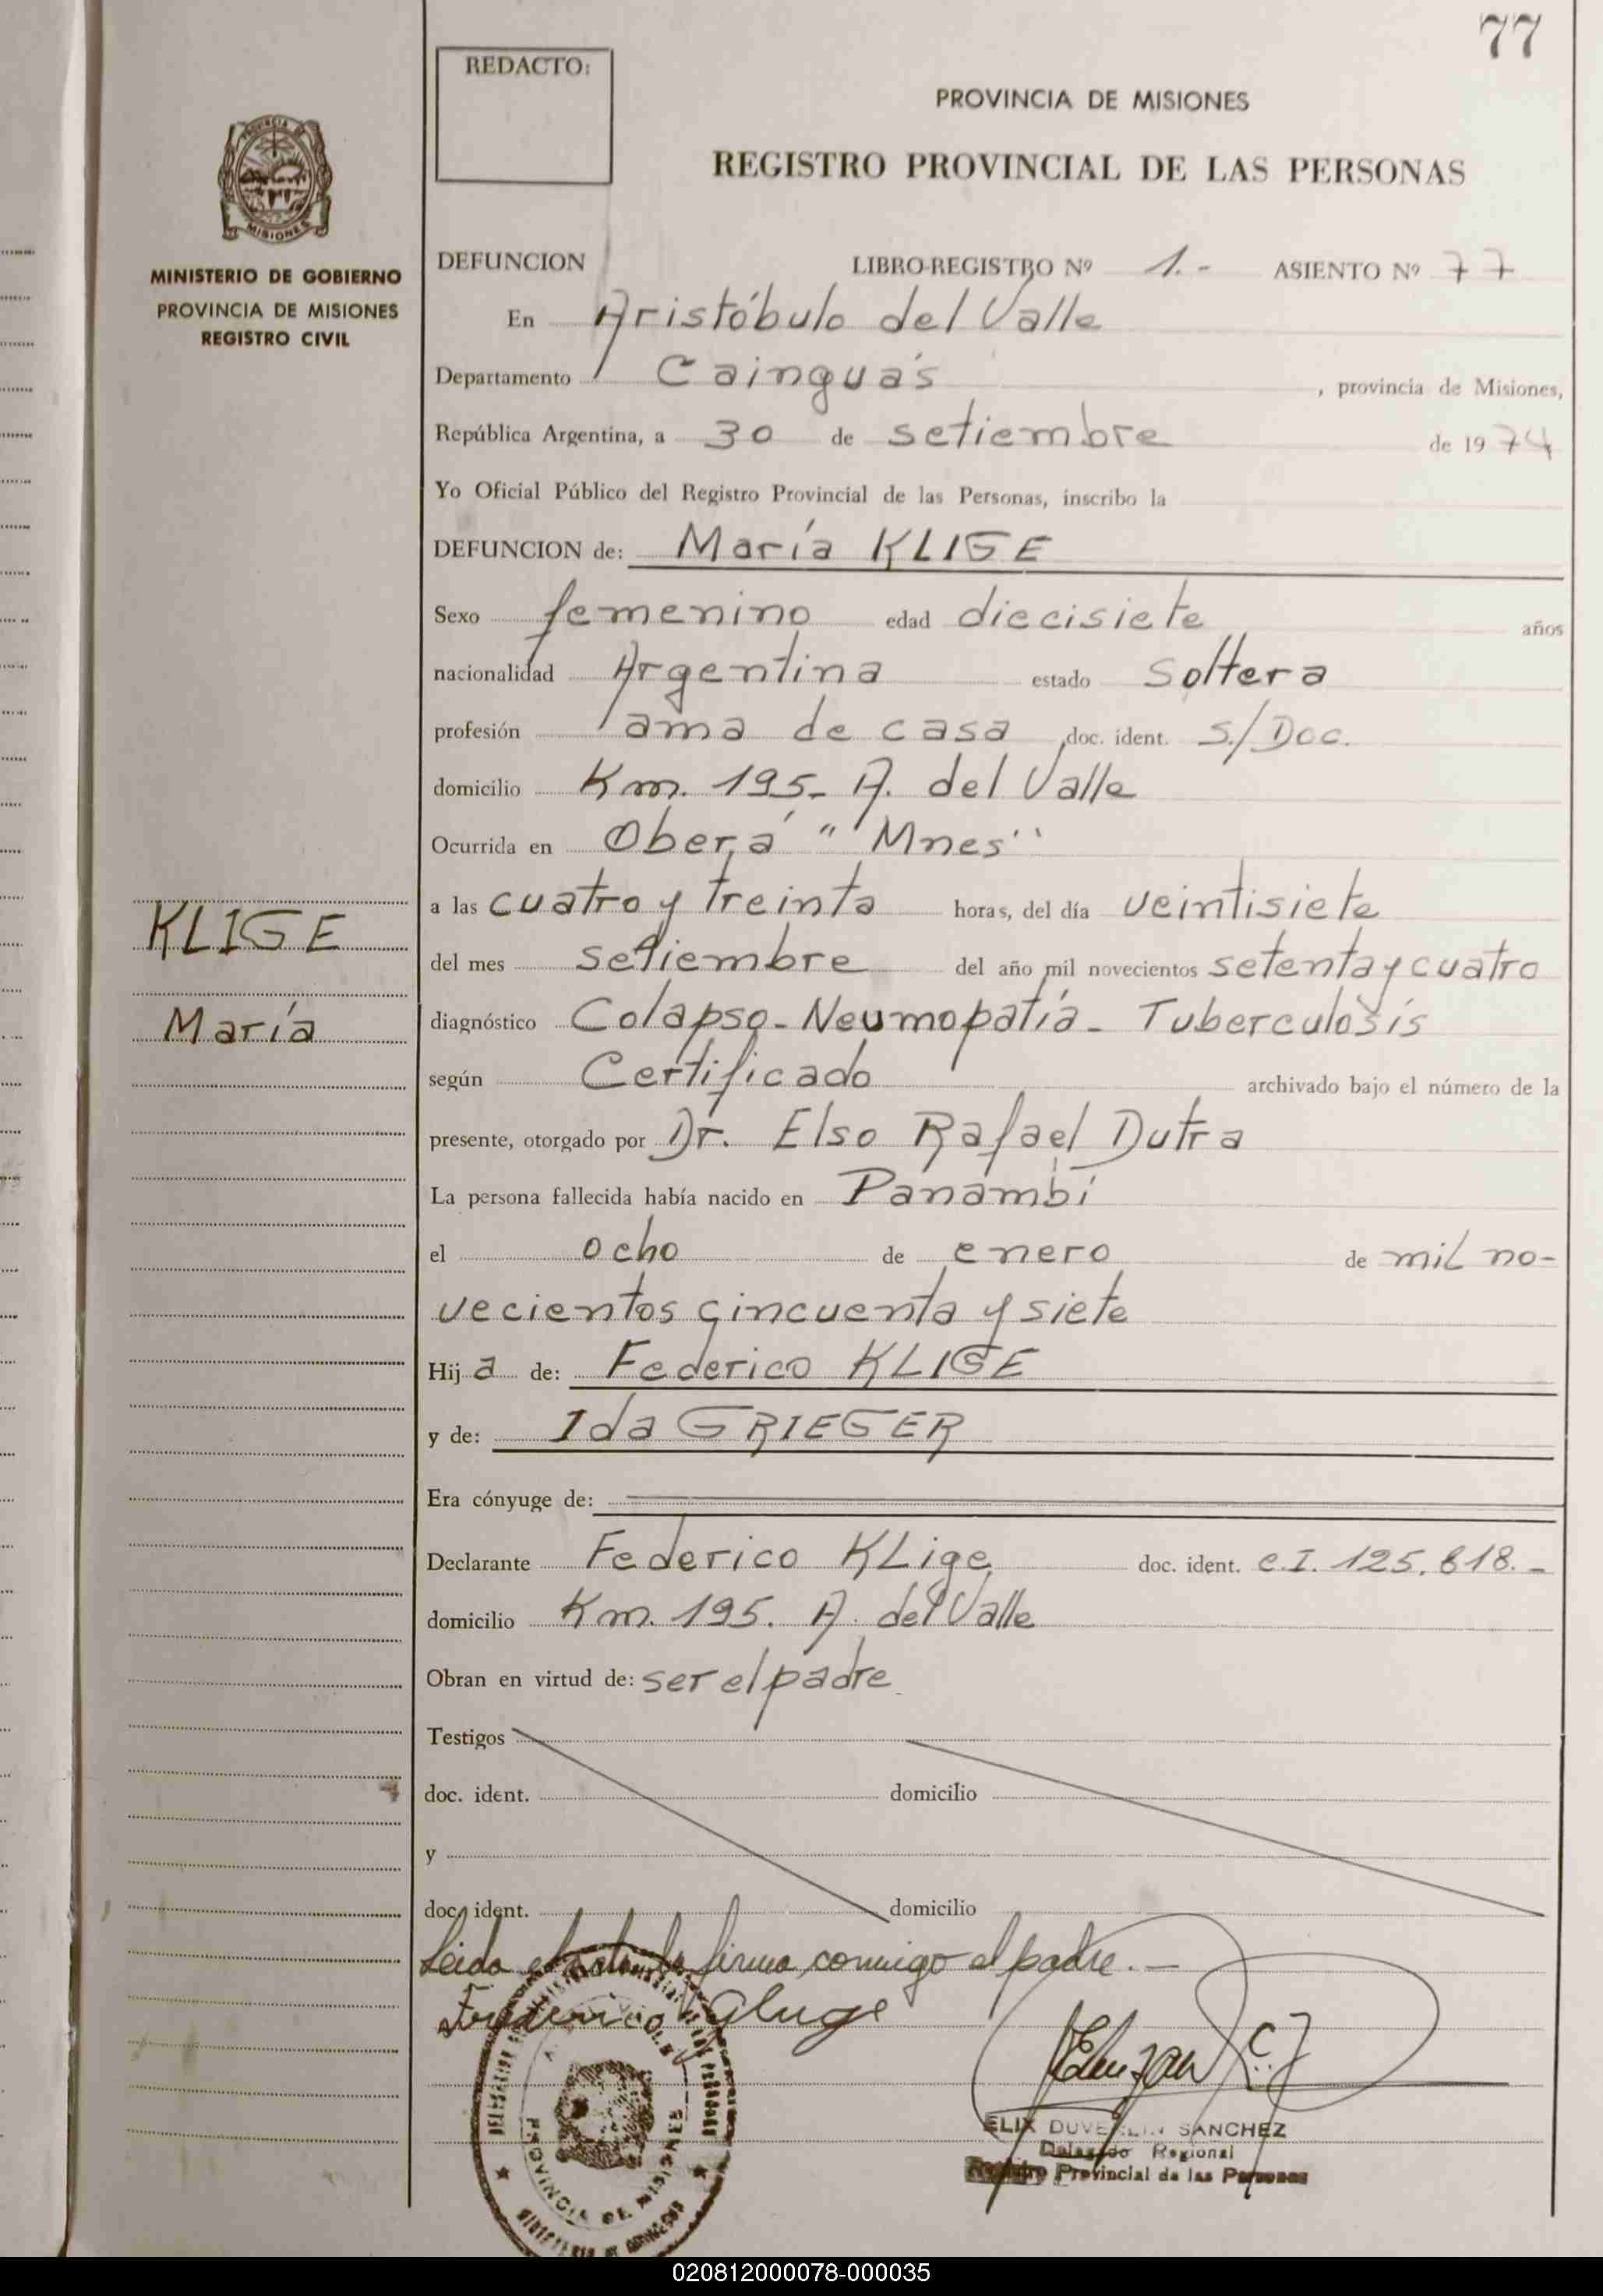 77
REDACTO:
PROVINCIA DE MISIONES
REGISTRO PROVINCIAL DE LAS PERSONAS
PROVINCIA DE
MISIONES
MINISTERIO DE GOBIERNO
PROVINCIA DE MISIONES
REGISTRO CIVIL
DEFUNCION LIBRO-REGISTRO Nº 1.- ASIENTO Nº 77
En Aristóbulo del Valle
Departamento Cainguás, provincia de Misiones,
República Argentina, a 30 de setiembre de 1974
Yo Oficial Público del Registro Provincial de las Personas, inscribo la
DEFUNCION de: María KLIGE
Sexo femenino edad diecisiete años
nacionalidad Argentina estado soltera
profesión ama de casa doc. ident. S./Doc.
domicilio Km. 195- A. del Valle
Ocurrida en Oberá "Mnes"
a las cuatro y treinta horas, del día veintisiete
del mes setiembre del año mil novecientos setenta y cuatro
diagnóstico Colapso- Neumopatía- Tuberculosis
según Certificado archivado bajo el número de la
presente, otorgado por Dr. Elso Rafael Dutra
La persona fallecida había nacido en Panambí
el ocho de enero de mil no-
vecientos cincuenta y siete
Hija de: Federico KLIGE
y de: Ida GRIEGER
Era cónyuge de:
Declarante Federico KLige doc. ident. C.I. 125.618.-
domicilio Km. 195. A. del Valle
Obran en virtud de: ser el padre
Testigos
doc. ident. domicilio
y
doc. ident. domicilio
Leida el acta la firma conmigo el padre.-
KLIGE
María
PROVINCIA DE MISIONES
SANCHEZ
Delegado Regional
Registro Provincial de las Personas
020812000078-000035